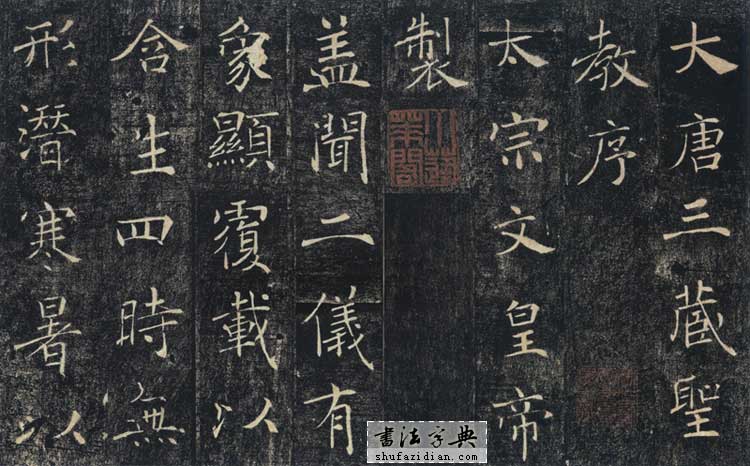 大唐三藏聖
教序
太宗文皇帝
製
盖聞二儀有
象顯覆載以
含生四時無
形潛寒暑以
書法字典
shufazidian.com